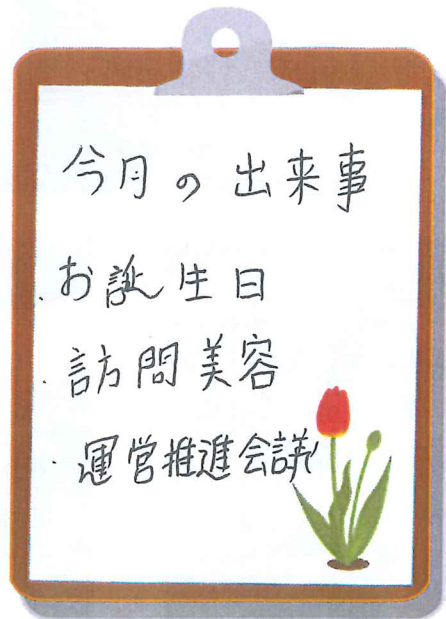 今月の出来事
・お誕生日
・訪問美容
・運営推進会議